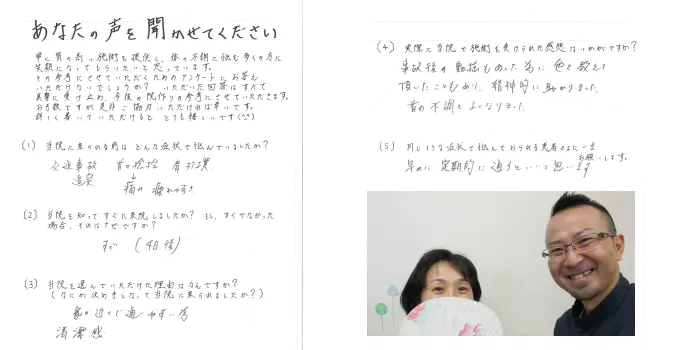 あなたの声を聞かせてください
常に質の高い施術を提供し、体の不調に悩む多くの方に
笑顔になってもらいたいと思っています。
その参考にさせていただくためのアンケートにお答え
いただけないでしょうか？ いただいた回答はすべて
真摯に受け止め、今後の院作りの参考にさせていただきます。
お手数ですが是非ご協力いただければ幸いです。
詳しく書いていただけると とても嬉しいです(^^)
(1) 当院に来られる前は どんな症状で悩んでいましたか？
交通事故 首の捻挫 肩打撲
追突 痛み 疲れやすさ
(2) 当院を知って すぐに来院しましたか？ もし、すぐでなかった
場合、それはなぜですか？
すぐ (4日後)
(3) 当院を選んでいただけた理由はなんですか？
(なにが決め手となって当院に来られましたか？)
家から近くて通いやすい為
清潔感
(4) 実際に当院で施術を受けられた感想はいかがですか？
事故後の動揺もあった為に 色々教えて
頂いたこともあり、精神的に助かりました。
首の不調もよくなりました。
(5) 同じような症状で悩んでおられる患者さまに一言
お願いします。
早めに 定期的に 通うといいと思います